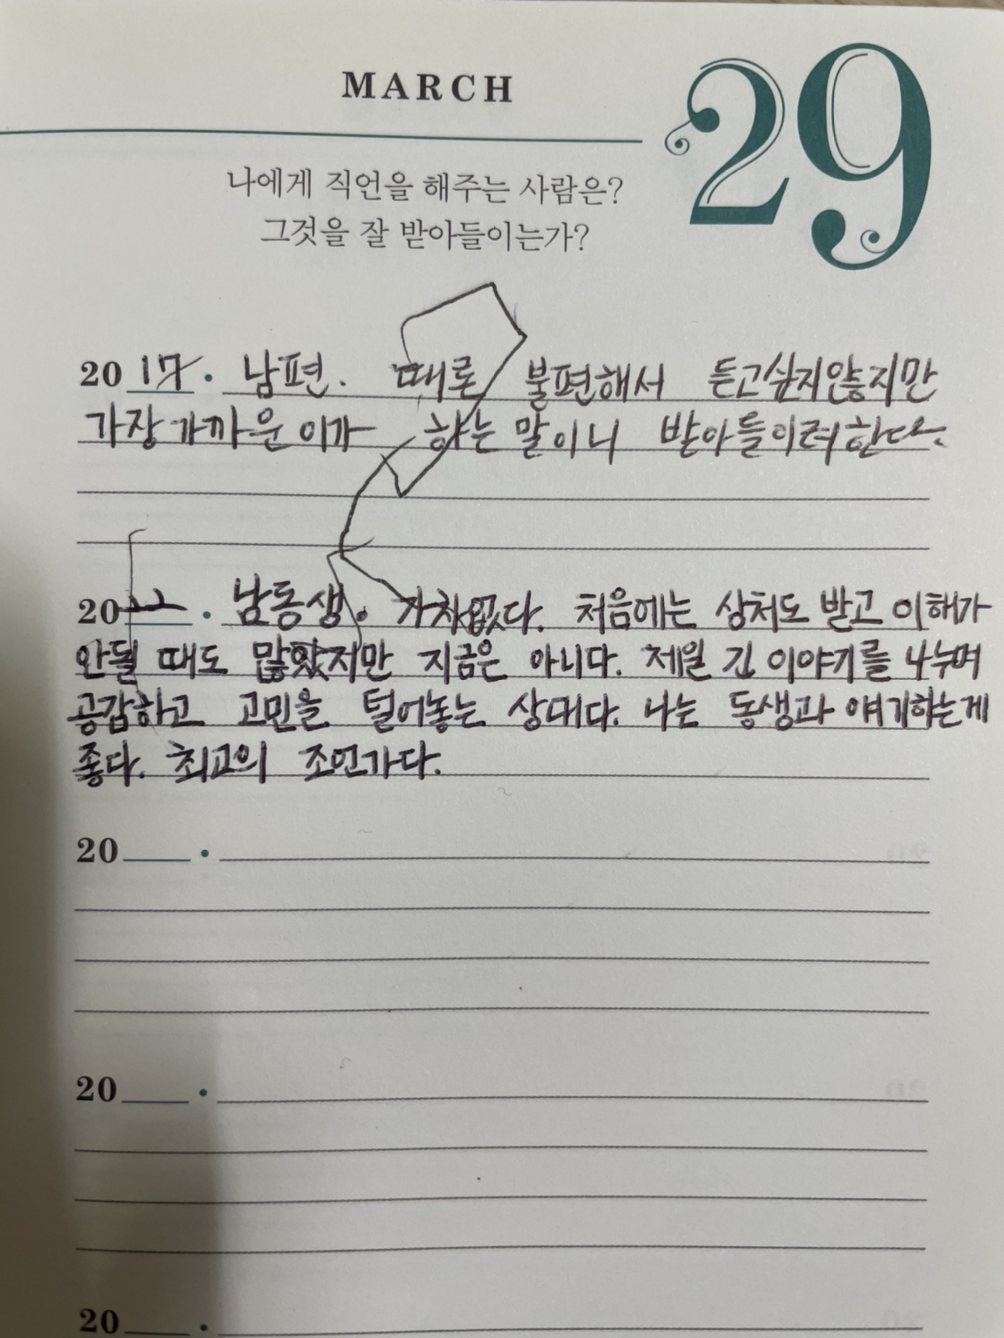 MARCH
29
나에게 직언을 해주는 사람은?
그것을 잘 받아들이는가?
2017. 남편. 때로 불편해서 듣고싶지않지만
가장 가까운 이가 하는 말이니 받아들이려한다.
2022. 남동생. 가차없다. 처음에는 상처도 받고 이해가
안될 때도 많았지만 지금은 아니다. 제일 긴 이야기를 나누며
공감하고 고민을 털어놓는 상대다. 나는 동생과 얘기하는게
좋다. 최고의 조언가다.
20 .
20 .
20 .